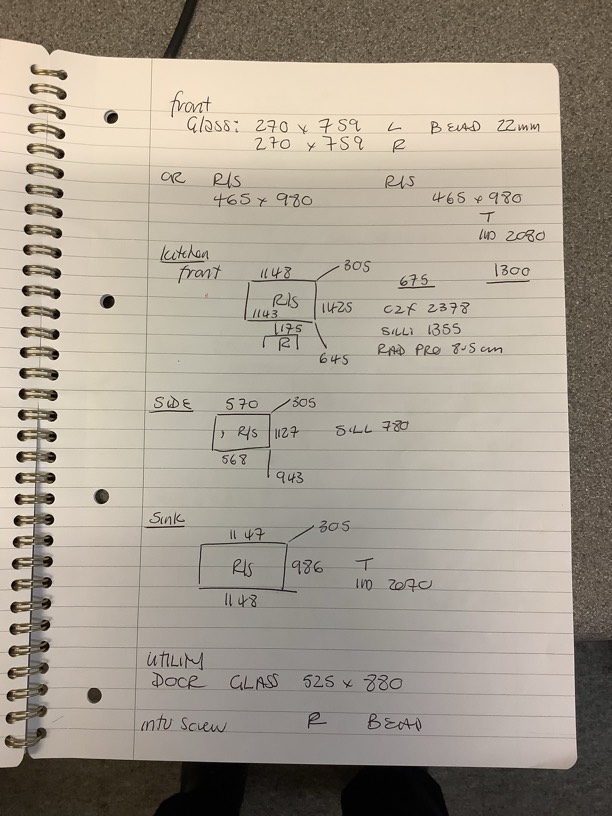 front
Glass: 270 x 759 L BEAD 22mm
270 x 759 R
OR R/S R/S
465 x 980 465 x 980
T
IND 2080
Kitchen
front 1148 305 675 1300
R/S 1425 CZF 2378
1143 SILL: 1355
1175 RAD PRO 8.5cm
R 645
SIDE 570 305
R/S 1127 SILL 780
568
943
Sink
1147 305
R/S 986 T
1148 IND 2070
UTILITY
DOOR GLASS 525 x 880
into screw R BEAD